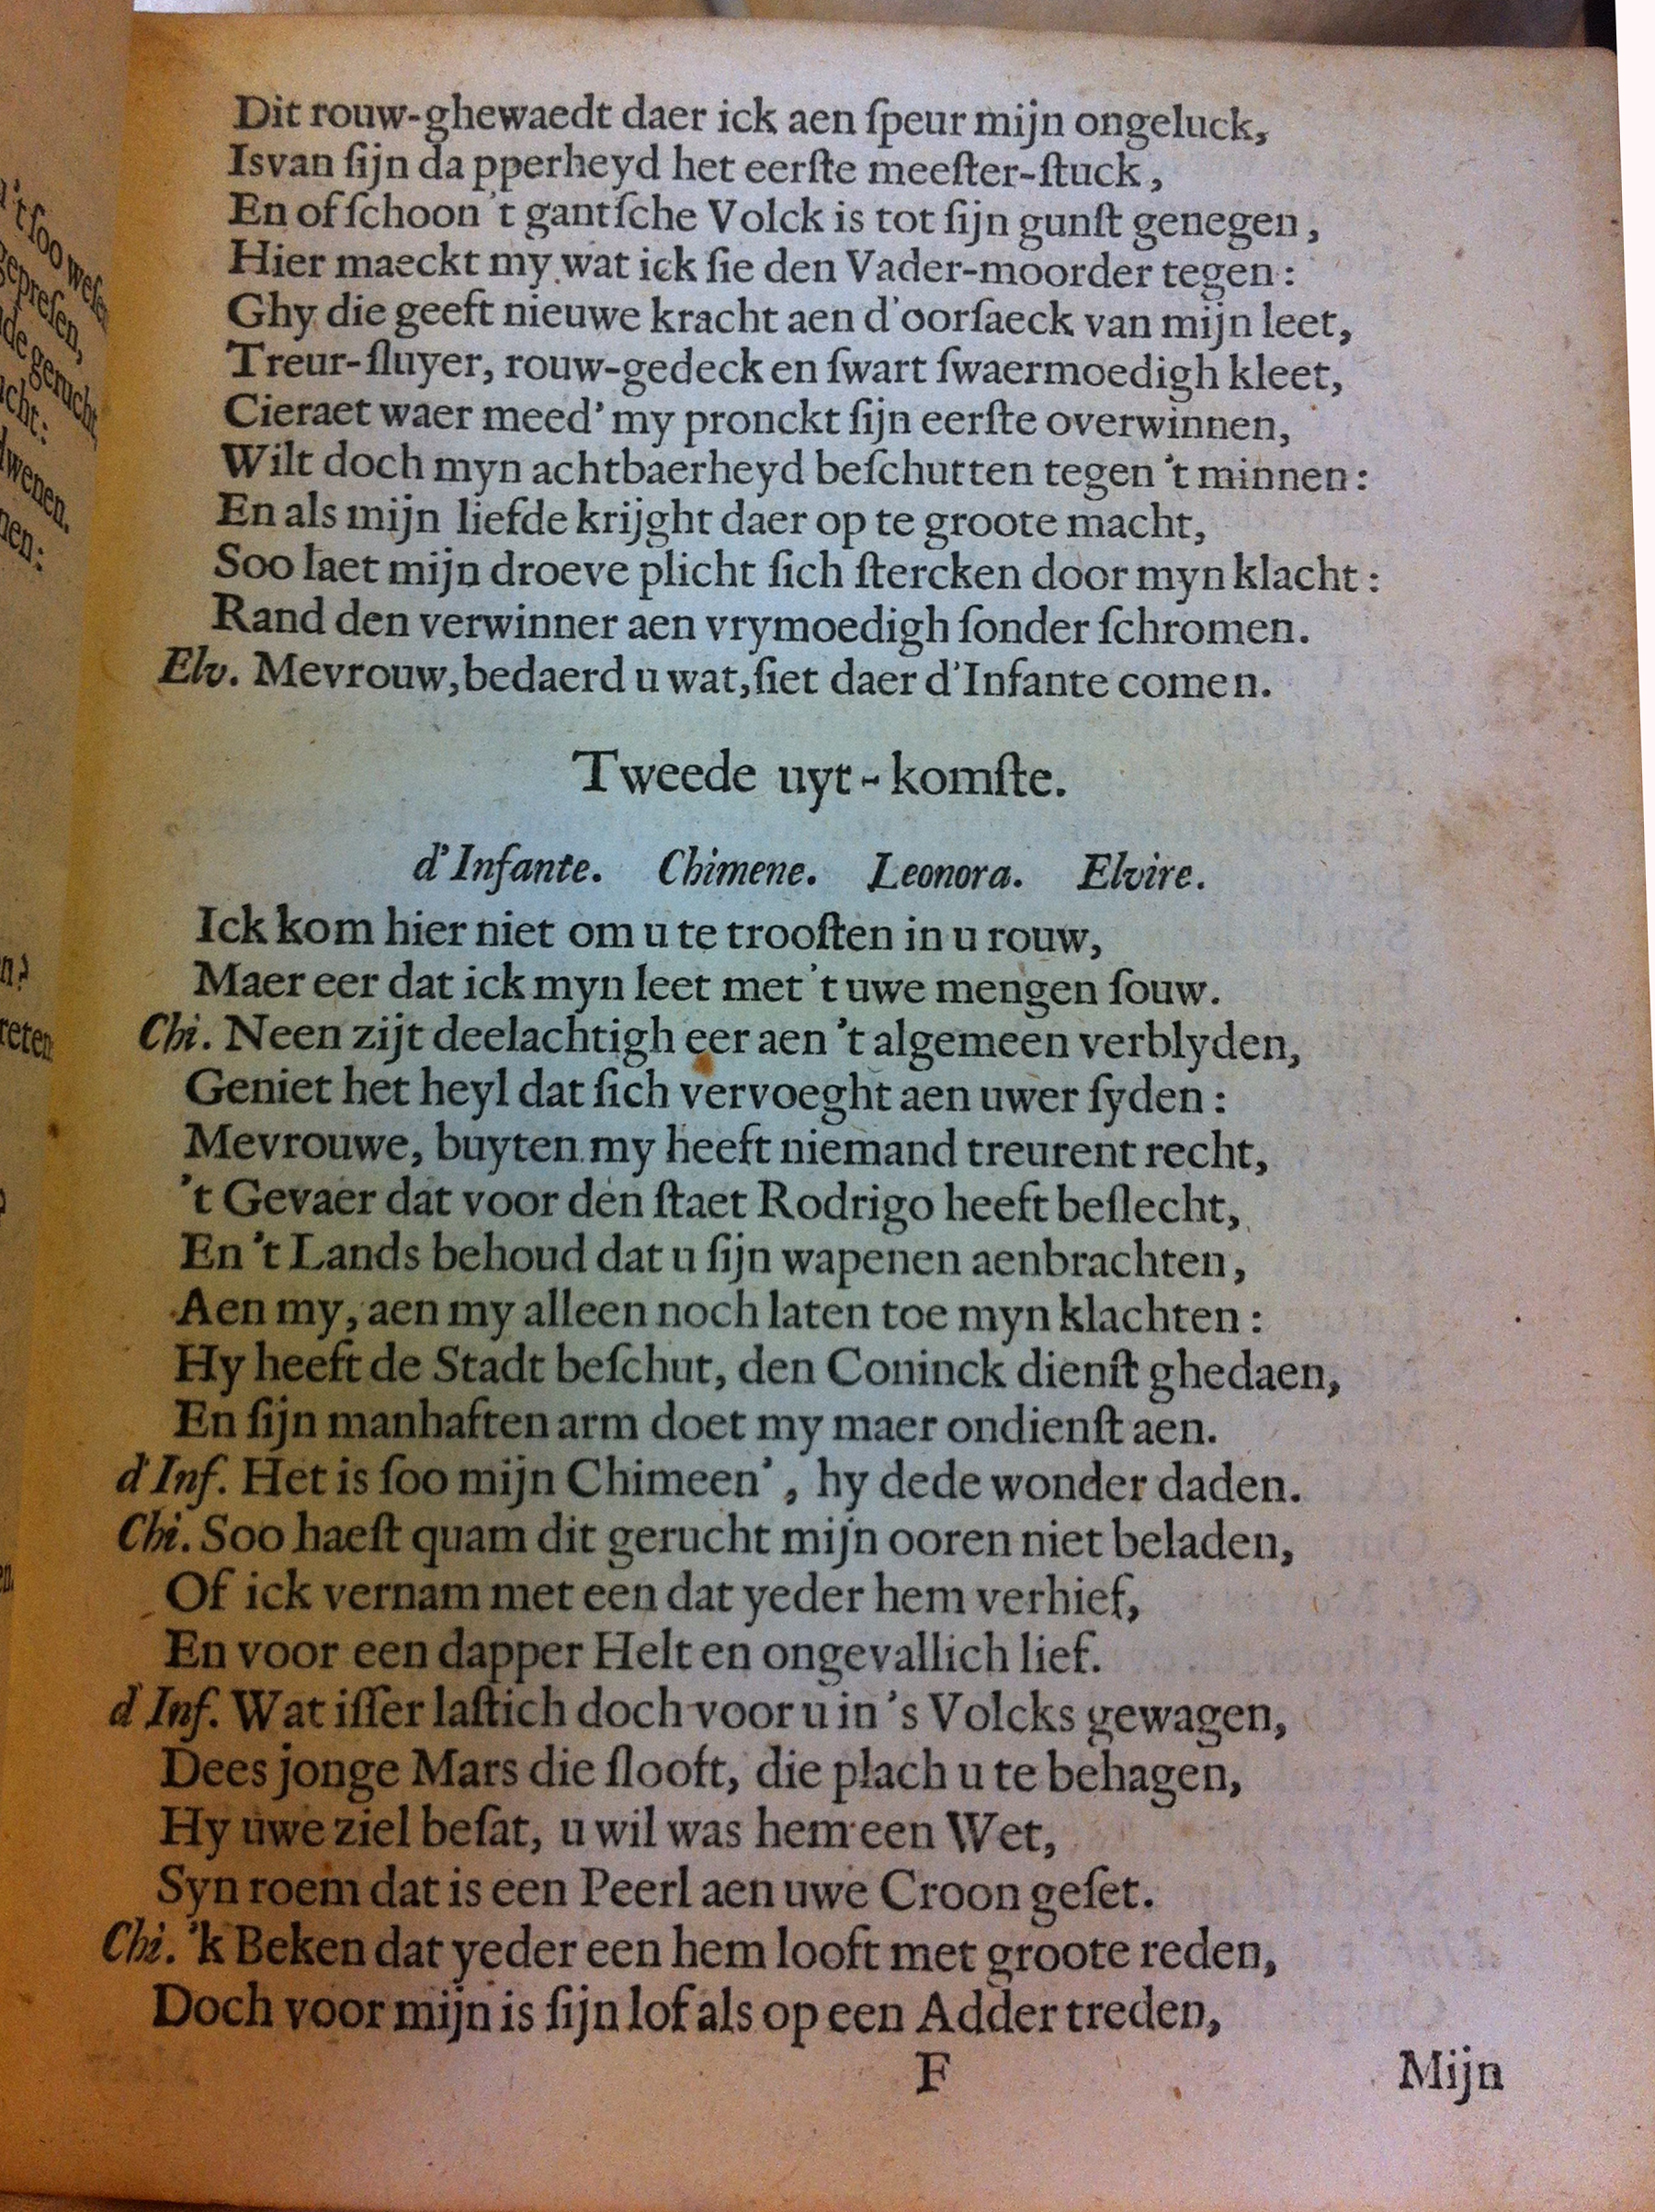 Dit rouw-ghewaedt daer ick aen ſpeur mijn ongeluck,
Isvan ſijn da pperheyd het eerſte meeſter-ſtuck,
En of ſchoon 't gantſche Volck is tot ſijn gunſt genegen,
Hier maeckt my wat ick ſie den Vader-moorder tegen:
Ghy die geeft nieuwe kracht aen d'oorſaeck van mijn leet,
Treur-ſluyer, rouw-gedeck en ſwart ſwaermoedigh kleet,
Cieraet waer meed' my pronckt ſijn eerſte overwinnen,
Wilt doch myn achtbaerheyd beſchutten tegen 't minnen:
En als mijn liefde krijght daer op te groote macht,
Soo laet mijn droeve plicht ſich ſtercken door myn klacht:
Rand den verwinner aen vrymoedigh ſonder ſchromen.
Elv. Mevrouw, bedaerd u wat, ſiet daer d'Infante comen.
Tweede uyt-komſte.
d'Infante. Chimene. Leonora. Elvire.
Ick kom hier niet om u te trooſten in u rouw,
Maer eer dat ick myn leet met 't uwe mengen ſouw.
Chi. Neen zijt deelachtigh eer aen 't algemeen verblyden,
Geniet het heyl dat ſich vervoeght aen uwer ſyden:
Mevrouwe, buyten my heeft niemand treurent recht,
't Gevaer dat voor den ſtaet Rodrigo heeft beſlecht,
En 't Lands behoud dat u ſijn wapenen aenbrachten,
Aen my, aen my alleen noch laten toe myn klachten:
Hy heeft de Stadt beſchut, den Coninck dienſt ghedaen,
En ſijn manhaften arm doet my maer ondienſt aen.
d'Inf. Het is ſoo mijn Chimeen', hy dede wonder daden.
Chi. Soo haeſt quam dit gerucht mijn ooren niet beladen,
Of ick vernam met een dat yeder hem verhief,
En voor een dapper Helt en ongevallich lief.
d'Inf. Wat iſſer laſtich doch voor u in 's Volcks gewagen,
Dees jonge Mars die ſlooft, die plach u te behagen,
Hy uwe ziel beſat, u wil was hem een Wet,
Syn roem dat is een Peerl aen uwe Croon geſet.
Chi. 'k Beken dat yeder een hem looft met groote reden,
Doch voor mijn is ſijn lof als op een Adder treden,
F Mijn